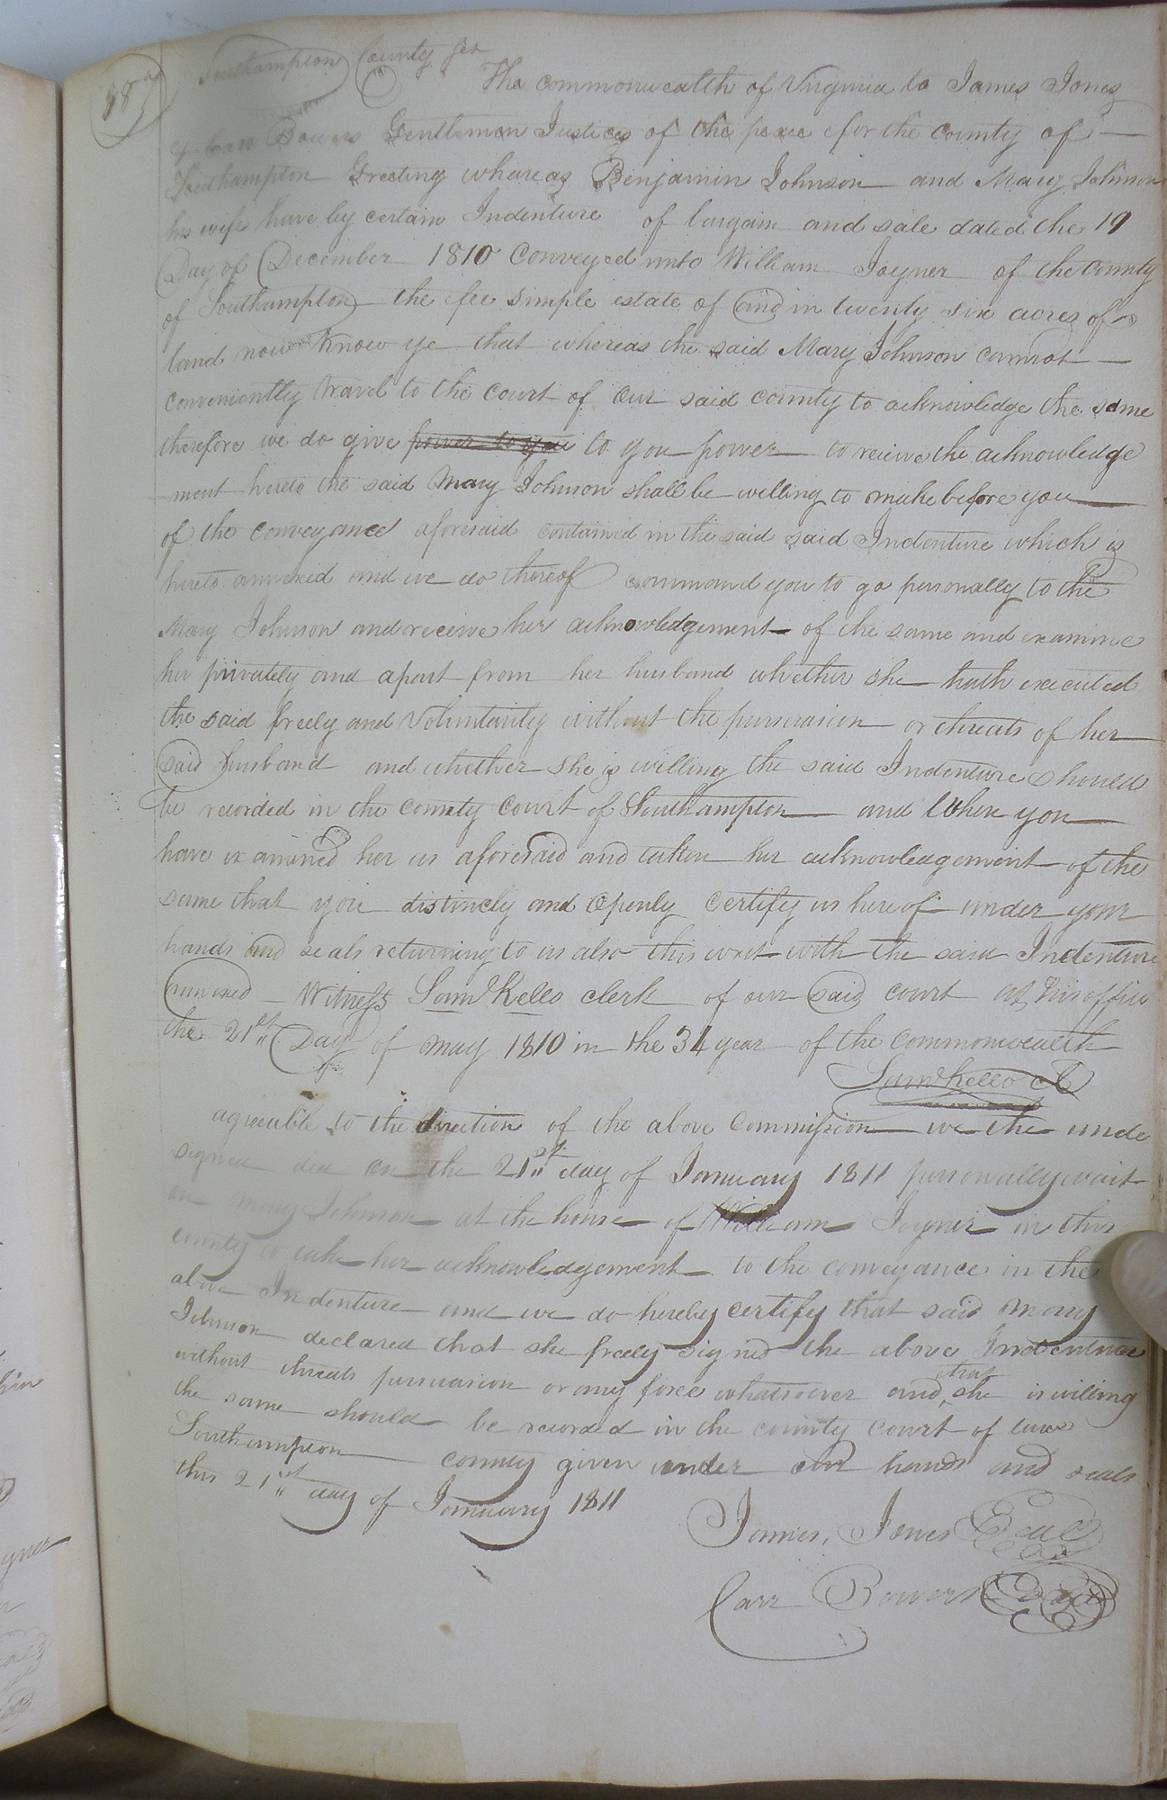 Southampton County Sct
The commonwealth of Virginia to James Jones
& Carr Bowers Gentlemen Justices of the peace for the County of
Southampton Greeting whereas Benjamin Johnson and Mary Johnson
his wife have by certain Indenture of bargain and sale dated the 19
Day of December 1810 Conveyed unto William Joyner of the County
of Southampton the fee simple estate of and in twenty six acres of
land now Know ye that whereas the said Mary Johnson cannot
conveniently travel to the court of our said county to acknowledge the same
therefore we do give power to you to you power to recieve the acknowledge
ment hereto the said Mary Johnson shall be willing to make before you
of the conveyance aforesaid contained in the said said Indenture which is
hereto annexed and we do thereof command you to go personally to the
Mary Johnson and receive her acknowledgement of the same and examine
her privately and apart from her husband whether she hath executed
the said freely and Voluntarily without the pursuasion or threats of her
said husband and whether she is willing the said Indenture should
be recorded in the county court of Southampton and When you
have examined her as aforesaid and taken her acknowledgement of the
same that you distinctly and Openly Certify us hereof under your
hands and seals returning to us also this writ with the said Indenture
annexed Witness Saml Kello clerk of our Said court at his office
the 21st Day of may 1810 in the 34 year of the commonwealth
Saml Kello Cl
agreeable to the direction of the above Commission we the unde
signed did on the 21st day of January 1811 personally wait
on mary Johnson at the house of William Joyner in this
county to take her acknowledgement to the conveyance in the
above Indenture and we do hereby certify that said mary
Johnson declared that she freely signed the above Indenture
without threats pursuasion or any force whatsoever and that she is willing
the same should be recorded in the county court of
Southampton county given under our hands and seals
this 21st day of January 1811
James, Jones Seal
Carr Bowers Seal